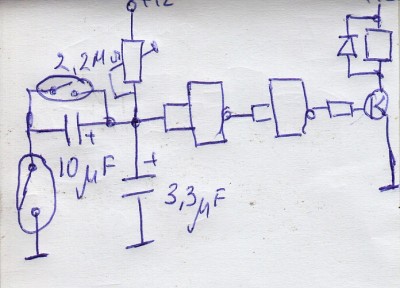 +12
2,2M
10 μF
3,3 μF